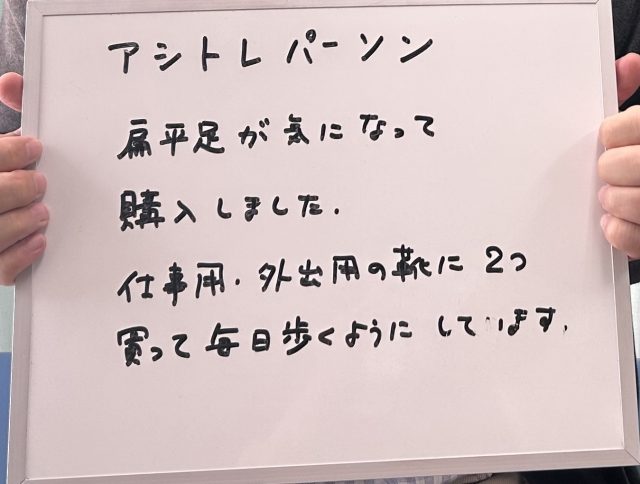 アシトレパーソン
扁平足が気になって
購入しました.
仕事用.外出用の靴に 2つ
買って毎日歩くようにしています.